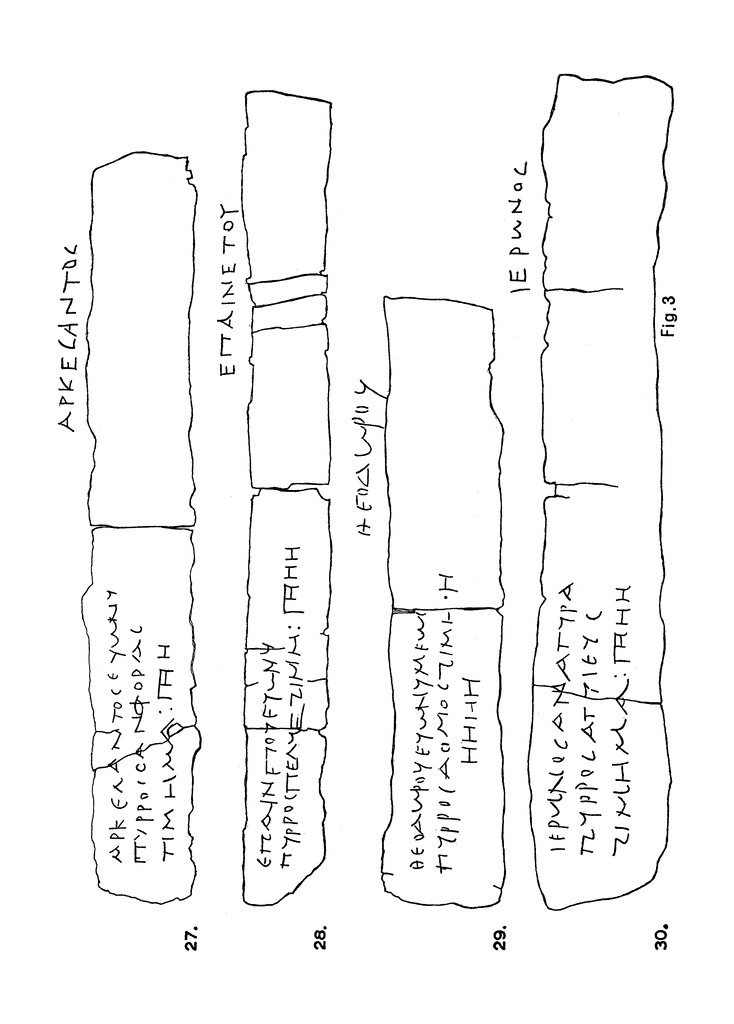 ΑΡΚΕCΑΝΤΟC
ΑΡΚΕCΑΝΤΟCΕΥΩΝΥ
ΠΥΡΡΟCCΑΝΦΟΡΑC
ΤΙΜΗΜΑ:𐅅Η
27.
ΕΠΑΙΝΕΤΟΥ
ΕΠΑΙΝΕΤΟΥΕΥΩΝΥ
28.
ΘΕΟΔΩΡΟΥ
ΘΕΟΔΩΡΟΥΕΥΩΝΥΜΕΩ
ΠΥΡΡΟCΔΟΜΟCΤΙΜΗ·Η
ΗΗΗΗ
29.
ΙΕΡΩΝΟC
ΙΕΡΩΝΟCΑΝΑΓΥΡΑ
ΠΥΡΡΟCΑΤΤΙΕΥC
ΤΙΜΗΜΑ:𐅅ΗΗ
30.
Fig.3